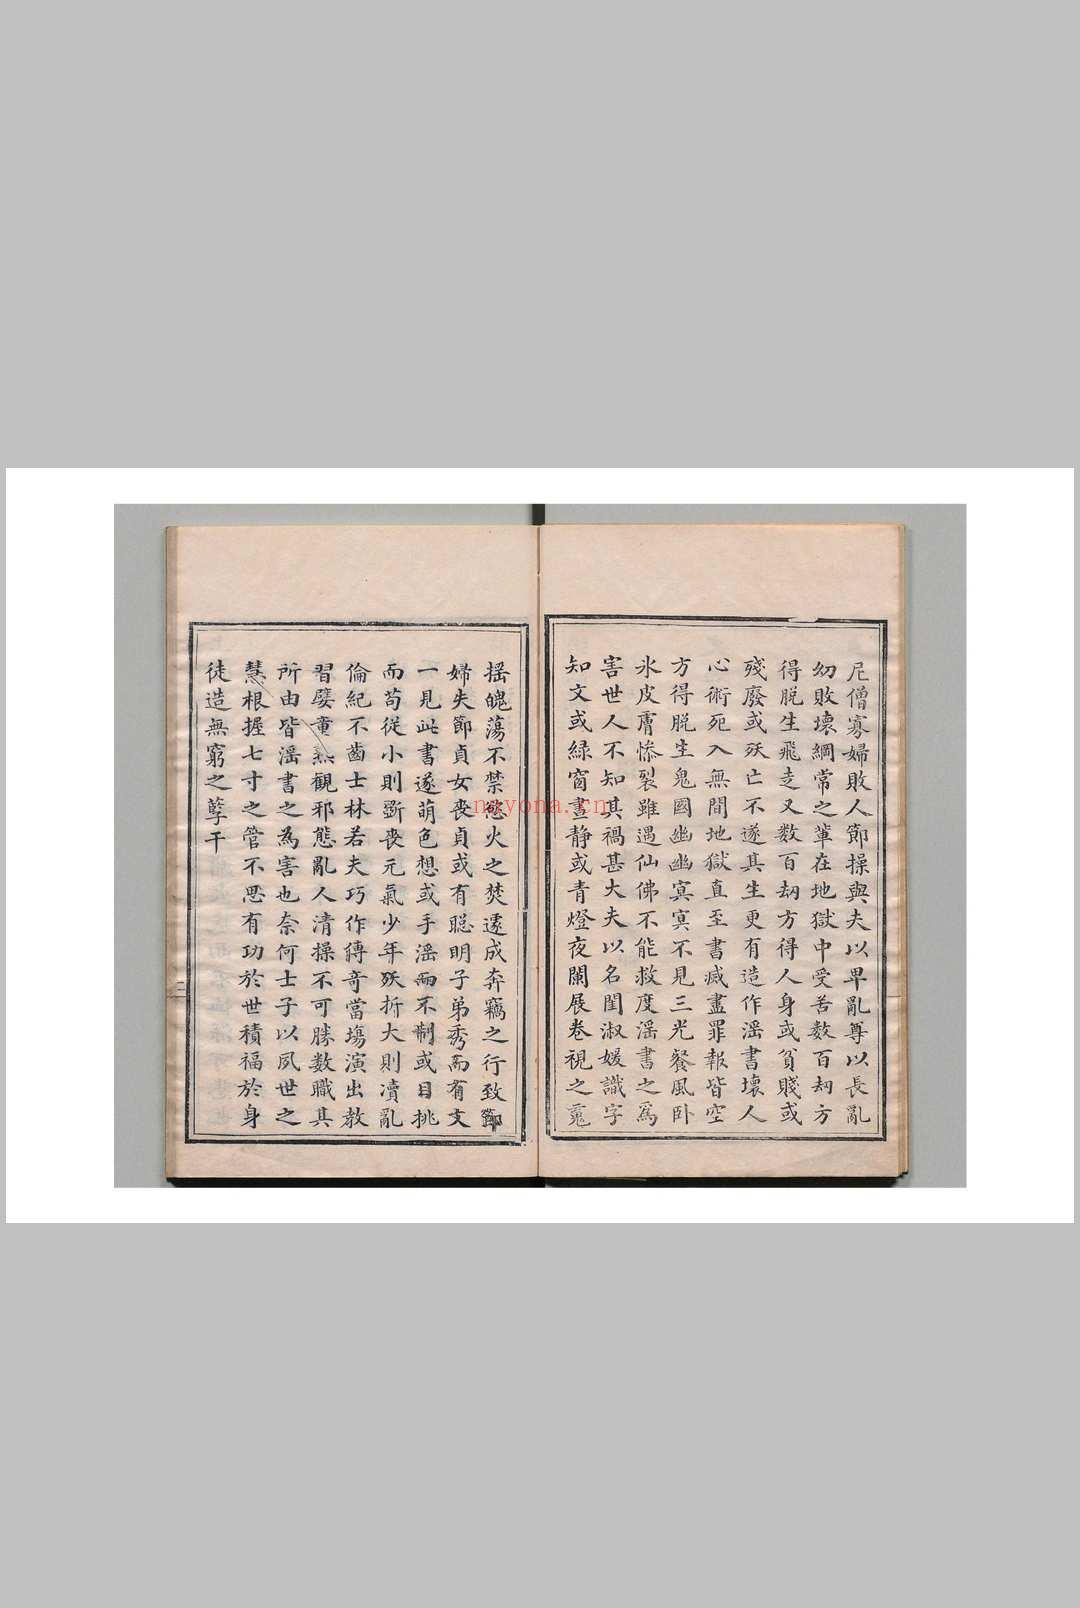 尼僧寡婦敗人節操與夫以卑亂尊以長亂
幼敗壞綱常之輩在地獄中受苦数百刼方
得脱生飛走又数百刼方得人身或貧賤或
殘廢或殀亡不遂其生更有造作滛書壞人
心術死入無間地獄直至書滅盡罪報皆空
方得脱生鬼國幽幽冥冥不見三光餐風卧
氷皮膚慘裂雖遇仙佛不能救度滛書之爲
害世人不知其禍甚大夫以名閨淑媛識字
知文或緑窗晝静或青燈夜闌展卷視之䰟
揺魄蕩不禁慾火之焚遽成奔竊之行致節
婦失節貞女喪貞或有聪明子弟秀而有文
一見此書遂萌色想或手滛而不制或目挑
而苟從小則斵喪元氣少年殀折大則瀆亂
倫紀不齒士林若夫巧作傳竒當塲演出教
習嬖童熟觀邪態亂人清操不可勝数職其
所由皆滛書之為害也奈何士子以夙世之
慧根握七寸之管不思有功於世積福於身
徒造無窮之孽干
二
nayona.cn